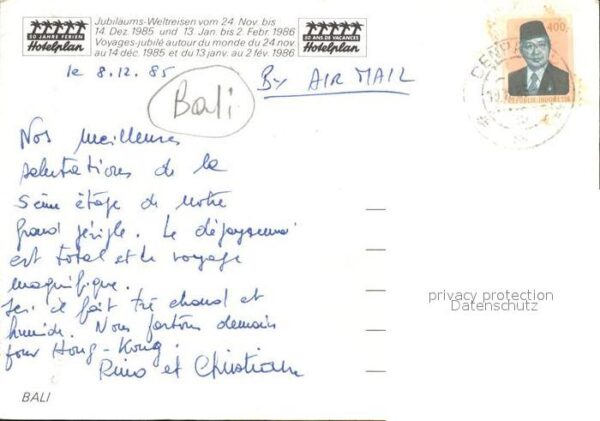 Jubiläums-Weltreisen vom 24. Nov. bis
14. Dez. 1985 und 13 Jan. bis 2. Febr. 1986
Voyages-jubilé autour du monde du 24. nov.
au 14 déc. 1985 et du 13 janv. au 2 fév. 1986
50 JAHRE FERIEN
Hotelplan
50 ANS DE VACANCES
Hotelplan
400,-
DENPA
REPUBLIK INDONESIA
le 8.12.85
BY AIR MAIL
Bali
Nos meilleures
salutations de la
5ème étape de notre
grand périple. Le dépaysement
est total et le voyage
magnifique.
Ici il fait très chaud et
humide. Nous partons demain
pour Hong-Kong.
et Christiane
privacy protection
Datenschutz
BALI